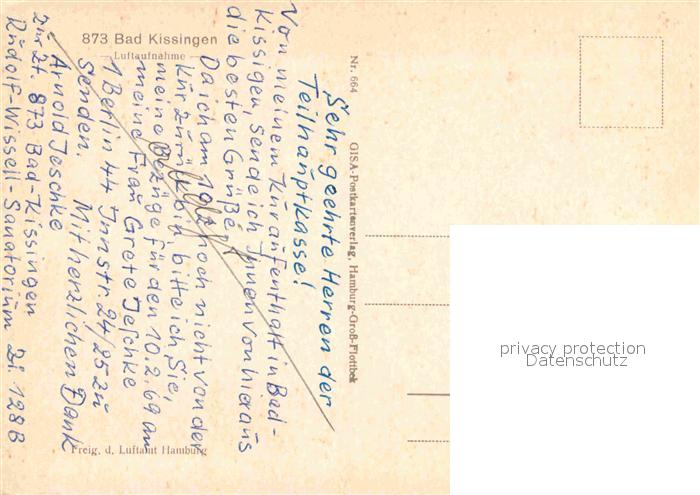 873 Bad Kissingen
Luftaufnahme
Sehr geehrte Herren der
Teilhauptkasse!
Von meinem Kuraufenthalt in Bad-
Kissigen, sende ich Ihnen von hieraus
die besten Grüße.
Da ich am 10.2. noch nicht von der
Kur zurück bin, bitte ich Sie,
meine Bezüge für den 10.2.69 an
meine Frau Grete Jeschke
1 Berlin 44 Innstr. 24/25 zu
senden. Mit herzlichem Dank
Arnold Jeschke
zur Zt. 873 Bad-Kissingen
Rudolf-Wissell-Sanatorium Zi 128B
Nr. 664 GISA-Postkartenverlag, Hamburg-Groß-Flottbek
Freig. d. Luftamt Hamburg
privacy protection
Datenschutz